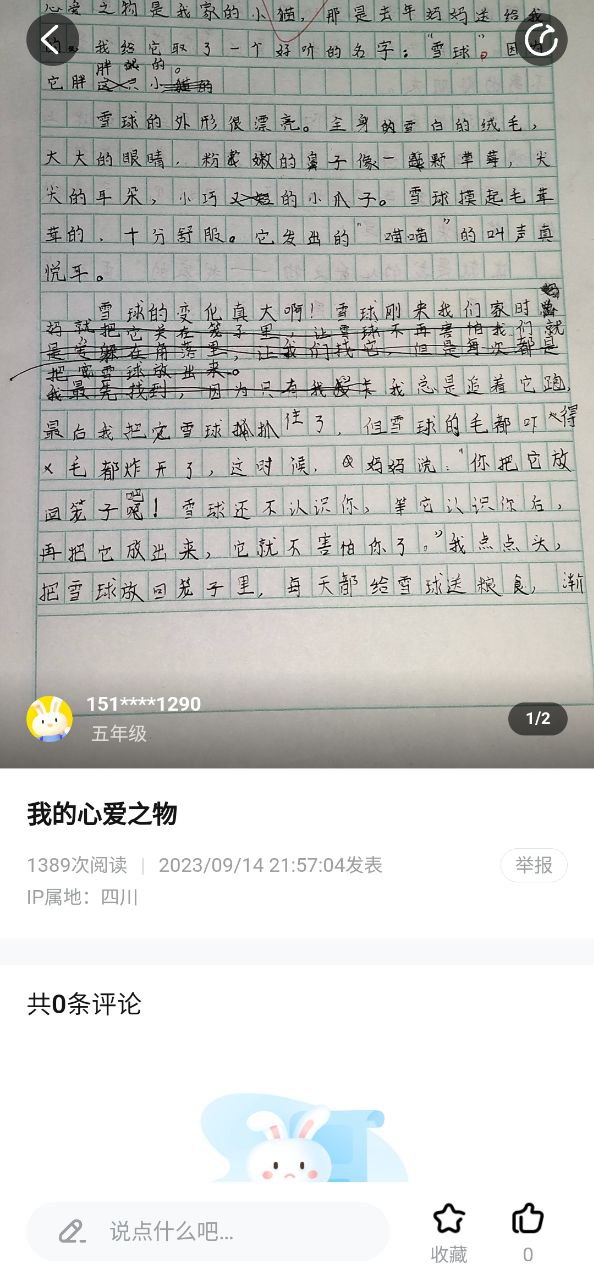 心爱之物是我家的小猫，那是去年妈妈送给我
我给它取了一个好听的名字："雪球"。因
胖 的。
它胖 小
雪球的外形很漂亮。全身的雪白的绒毛，
大大的眼睛，粉嫩的鼻子像一颗草莓，尖
尖的耳朵，小巧的小爪子。雪球摸起毛茸
茸的，十分舒服。它发出的"喵喵"的叫声真
悦耳。
雪球的变化真大啊！雪球刚来我们家时
妈就把它关在笼子里，让雪球不再害怕我们就
是 躲在角落里，让我们找它，但是每次都是
把 雪球放出来。
我最先找到，因为只有我 我总是追着它跑，
最后我把雪球抓住了，但雪球的毛都吓得
毛都炸开了，这时候，妈妈说："你把它放
回笼子吧！雪球还不认识你，等它认识你后，
再把它放出来，它就不害怕你了。"我点点头，
把雪球放回笼子里，每天都给雪球送粮食，渐
151****1290
五年级
1/2
我的心爱之物
1389次阅读 | 2023/09/14 21:57:04发表
举报
IP属地：四川
共0条评论
说点什么吧...
收藏
0